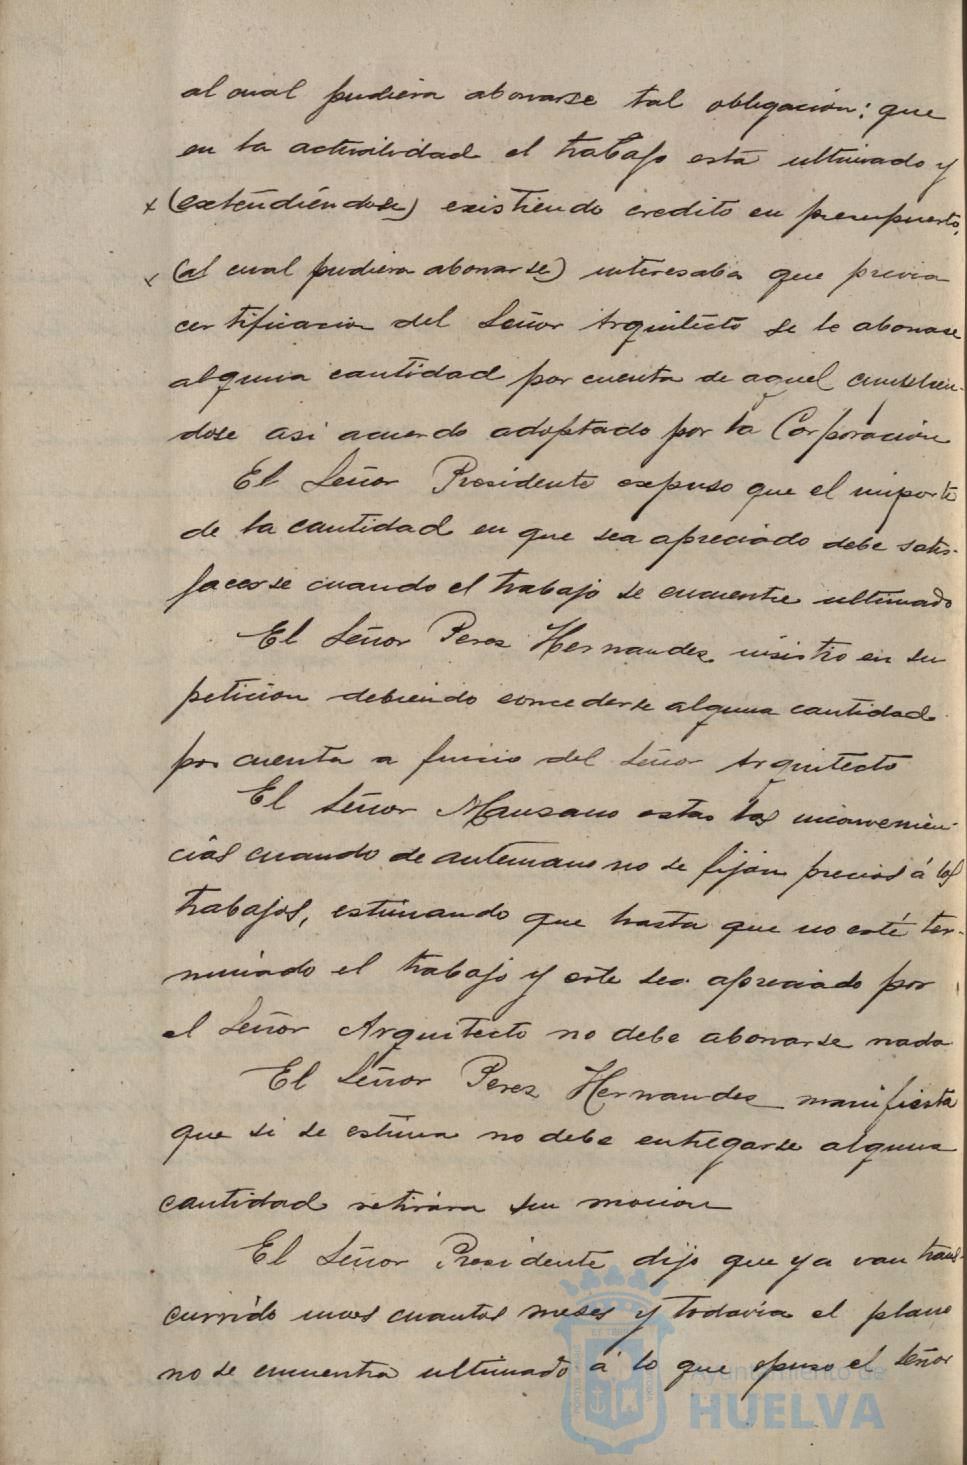 al cual pudiera abonarse tal obligación; que
en la actualidad el trabajo está ultimado y
x (extendiéndose) existiendo credito en presupuesto,
x (al cual pudiera abonarse) interesaba que previa
certificacion del Señor Arquitecto se le abonase
alguna cantidad por cuenta de aquel cumplien-
dose asi acuerdo adoptado por la Corporación
El Señor Presidente expuso que el importe
de la cantidad en que sea apreciado debe satis-
facerse cuando el trabajo se encuentre ultimado
El Señor Perez Hernandez insistio en su
peticion debiendo concederse alguna cantidad
por cuenta a juicio del Señor Arquitecto
El Señor Manzano estas las inconvenien-
cias cuando de antemano no se fijan precios á los
trabajos, estimando que hasta que no esté ter-
minado el trabajo y este sea apreciado por
el Señor Arquitecto no debe abonarse nada
El Señor Perez Hernandez manifiesta
que si se estima no debe entregarse alguna
cantidad retirara su mocion
El Señor Presidente dijo que ya van trans-
currido unos cuantos meses y todavia el plano
no se encuentra ultimado á lo que opuso el Señor
Ayuntamiento de
HUELVA